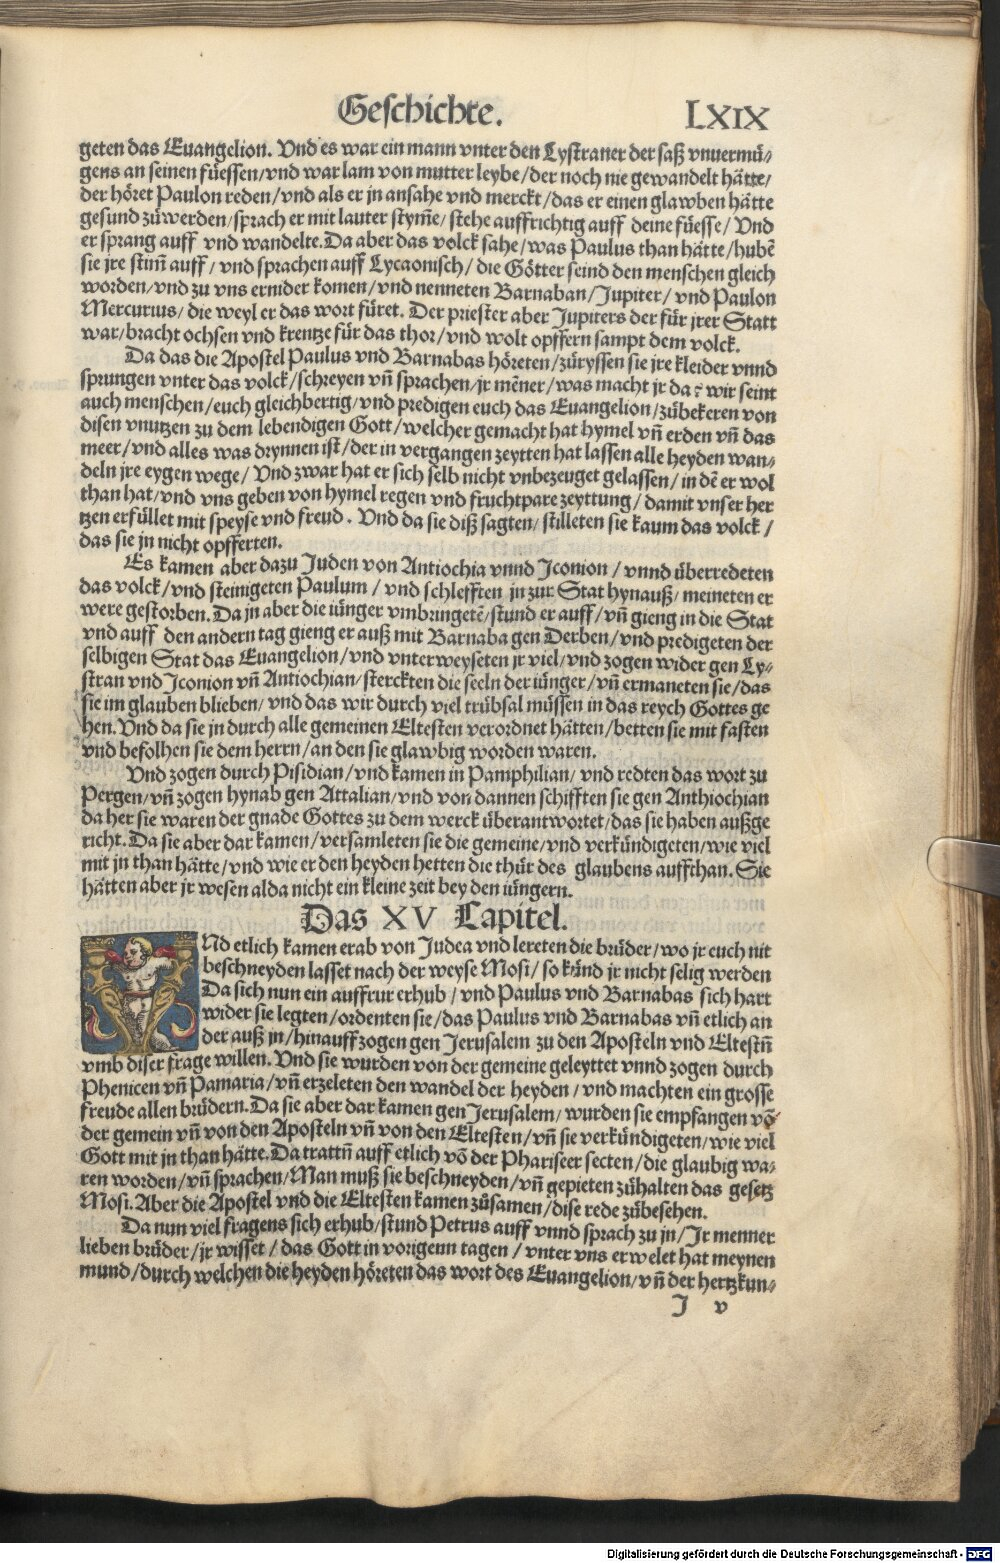 Geschichte. LXIX
geten das Euangelion. Vnd es war ein mann vnter den Lystraner der saß vnuermü-
gens an seinen füessen/vnd war lam von mutter leybe/der noch nie gewandelt hätte/
der höret Paulon reden/vnd als er jn ansahe vnd merckt/das er einen glawben hätte
gesund zůwerden/sprach er mit lauter stym̃e/stehe auffrichtig auff deine füesse/Vnd
er sprang auff vnd wandelte. Da aber das volck sahe/was Paulus than hätte/hubẽ
sie jre stim̃ auff/vnd sprachen auff Lycaonisch/die Götter seind den menschen gleich
worden/vnd zu vns ernider komen/vnd nenneten Barnaban/Jupiter/vnd Paulon
Mercurius/die weyl er das wort füret. Der priester aber Jupiters der für jrer Statt
war/bracht ochsen vnd krentze für das thor/vnd wolt opffern sampt dem volck.
Da das die Apostel Paulus vnd Barnabas höreten/zůryssen sie jre kleider vnnd
sprungen vnter das volck/schreyen vñ sprachen/jr mẽner/was macht jr da? wir seint
auch menschen/euch gleichbertig/vnd predigen euch das Euangelion/zůbekeren von
disen vnutzen zu dem lebendigen Gott/welcher gemacht hat hymel vñ erden vñ das
meer/vnd alles was drynnen ist/der in vergangen zeytten hat lassen alle heyden wan-
deln jre eygen wege/Vnd zwar hat er sich selb nicht vnbezeuget gelassen/in dẽ er wol
than hat/vnd vns geben von hymel regen vnd fruchtpare zeyttung/damit vnser her
tzen erfüllet mit speyse vnd freud. Vnd da sie diß sagten/stilleten sie kaum das volck/
das sie jn nicht opfferten.
Es kamen aber dazu Juden von Antiochia vnnd Iconion/vnnd überredeten
das volck/vnd steinigeten Paulum/vnd schlefften jn zur Stat hynauß/meineten er
were gestorben. Da jn aber die jünger vmbringetẽ/stund er auff/vñ gieng in die Stat
vnd auff den andern tag gieng er auß mit Barnaba gen Derben/vnd predigeten der
selbigen Stat das Euangelion/vnd vnterweyseten jr viel/vnd zogen wider gen Ly-
stran vnd Iconion vñ Antiochian/sterckten die seeln der jünger/vñ ermaneten sie/das
sie im glauben blieben/vnd das wir durch viel trübsal müssen in das reych Gottes ge
hen. Vnd da sie jn durch alle gemeinen Eltesten verordnet hätten/betten sie mit fasten
vnd befolhen sie dem herrn/an den sie glawbig worden waren.
Vnd zogen durch Pisidian/vnd kamen in Pamphilian/vnd redten das wort zu
Pergen/vñ zogen hynab gen Attalian/vnd von dannen schifften sie gen Anthiochian
da her sie waren der gnade Gottes zu dem werck überantwortet/das sie haben außge
richt. Da sie aber dar kamen/versamleten sie die gemeine/vnd verkündigeten/wie viel
mit jn than hätte/vnd wie er den heyden hetten die thür des glaubens auffthan. Sie
hätten aber jr wesen alda nicht ein kleine zeit bey den jüngern.
Das XV Capitel.
VNd etlich kamen erab von Judea vnd lereten die brüder/wo jr euch nit
beschneyden lasset nach der weyse Mosi/so künd jr nicht selig werden
Da sich nun ein auffrur erhub/vnd Paulus vnd Barnabas sich hart
wider sie legten/ordenten sie/das Paulus vnd Barnabas vñ etlich an
der auß jn/hinauff zogen gen Jerusalem zu den Aposteln vnd Eltestñ
vmb diser frage willen. Vnd sie wurden von der gemeine geleyttet vnnd zogen durch
Phenicen vñ Pamaria/vñ erzeleten den wandel der heyden/vnd machten ein grosse
freude allen brüdern. Da sie aber dar kamen gen Jerusalem/wurden sie empfangen võ
der gemein vñ von den Aposteln vñ von den Eltesten/vñ sie verkündigeten/wie viel
Gott mit jn than hätte. Da trattñ auff etlich võ der Phariseer secten/die glaubig wa-
ren worden/vñ sprachen/Man muß sie beschneyden/vñ gepieten zůhalten das gesetz
Mosi. Aber die Apostel vnd die Eltesten kamen zůsamen/dise rede zůbesehen.
Da nun viel fragens sich erhub/stund Petrus auff vnnd sprach zu jn/Ir menner
lieben brüder/jr wisset/das Gott in vorigenn tagen/vnter vns erwelet hat meynen
mund/durch welchen die heyden höreten das wort des Euangelion/vñ der hertzkun-
J v
Digitalisierung gefördert durch die Deutsche Forschungsgemeinschaft - DFG